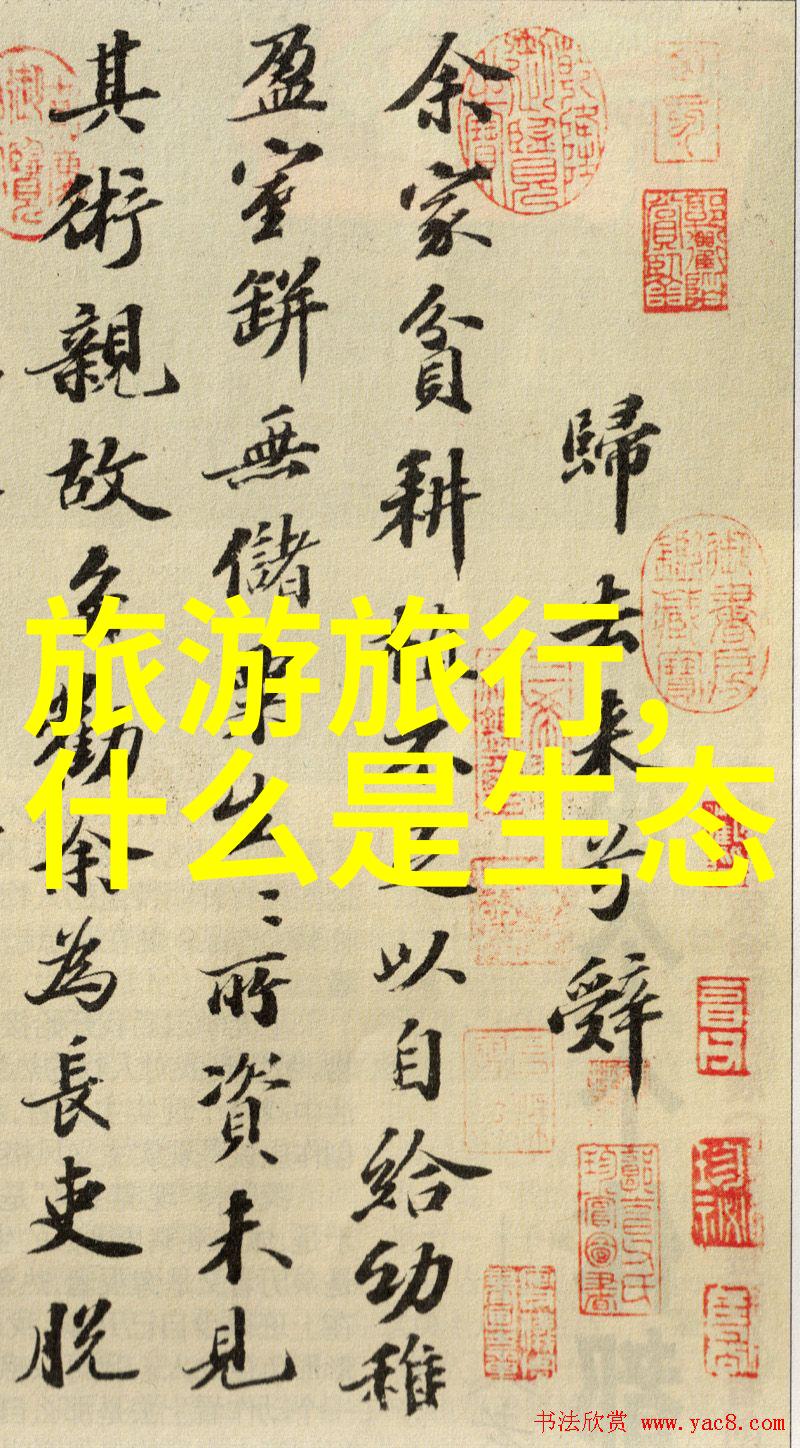 歸去来兮辭
余家貧耕植不足以自給幼稚
盈室缾無儲粟生〻所資未見
其術親故多勸余為長吏脱
旅游旅行,
什么是生态
书法欣赏 www.yac8.com